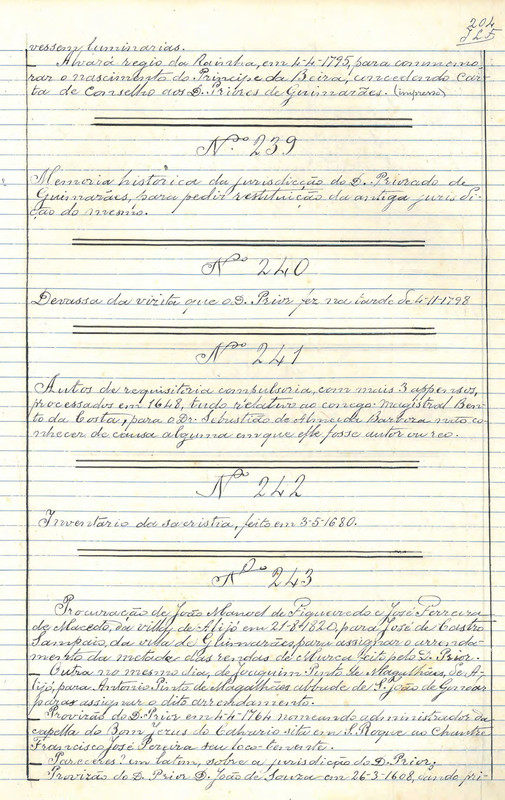 204
vessem luminarias.
_ Alvará regio da Rainha, em 4-4-1795, para commemo-
rar o nascimento do Principe da Beira, concedendo Car-
ta de Conselho aos D. Priores de Guimarães. (impresso)
Nº 239
Memoria historica da jurisdicção do D. Priorado de
Guimarães, para pedir restituição da antiga jurisdi-
ção do mesmo.
Nº 240
Devassa da vizita que o D. Prior fez na tarde de 4-11-1798
Nº 241
Autos de requisitoria compulsoria, com mais 3 appensos,
processados em 1648, tudo relativo ao conego Magistral Ben-
to da Costa, para o Dr. Sebastião de Almeida Barboza não co-
nhecer de causa alguma em que elle fosse autor ou reo.
Nº 242
Inventário da sacristia, feito em 3-5-1680.
Nº 243
Procuração de João Manoel de Figueiredo e José Ferreira
de Macedo, da villa de Alijó em 21-8-1820, para José de Castro
Sampaio, da villa de Guimarães, para assignar o arrenda-
mento da metade das rendas de Murça feito pelo D. Prior.
_ Outra no mesmo dia, de Joaquim Pinto de Magalhães, de A-
lijó, para Antonio Pinto de Magalhães abbade de S. João de
para assignar o dito arrendamento.
_ Provizão do D. Prior em 4-4-1764 nomeando administrador da
capella do Bom Jezus do Calvario sita em S. Roque ao Chantre
Francisco José Pereira seu loco-tenente.
_ Pareceres em latim, sobre a jurisdicção do D. Prior;
_ Provizão do D. Prior D. João de Souza em 26-3-1608, dando pri-